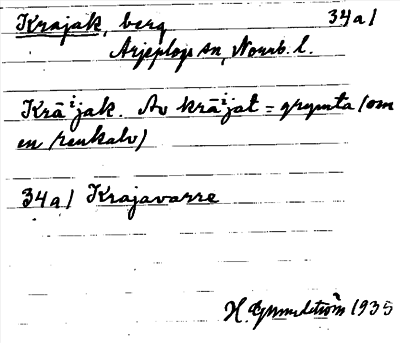 Krajak, berg 34a1
Arjeplogs sn, Norrb. l.
Kräⁱjak. Av kräⁱjat = grymta (om
en renkalv)
34a1 Krajavarre
H. 1935